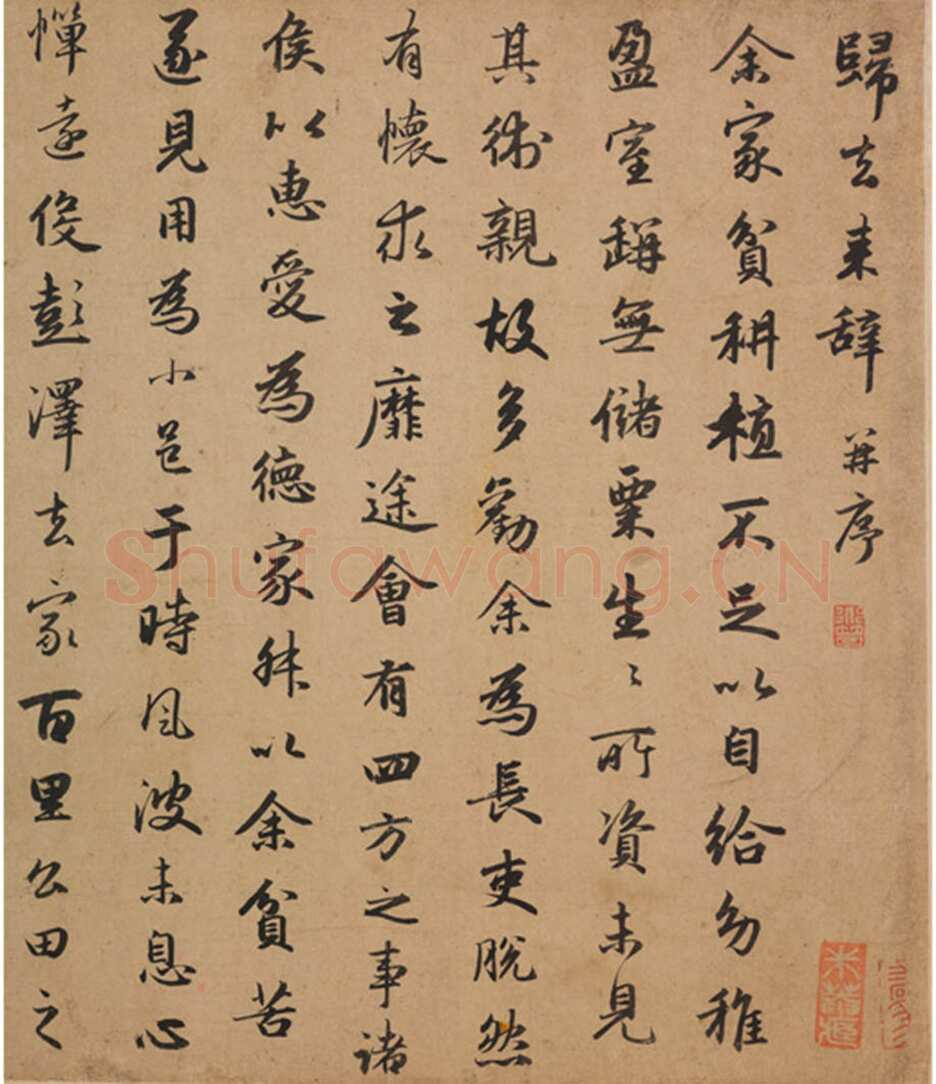 歸去来辞 并序
余家貧耕植不足以自給幼稚
盈室缾無儲粟生〻所資未見
其術親故多勸余為長吏脱然
有懷求之靡途會有四方之事諸
侯以惠愛為德家叔以余貧苦
遂見用為小邑于時風波未息心
憚遠役彭澤去家百里公田之
Shufawang.CN